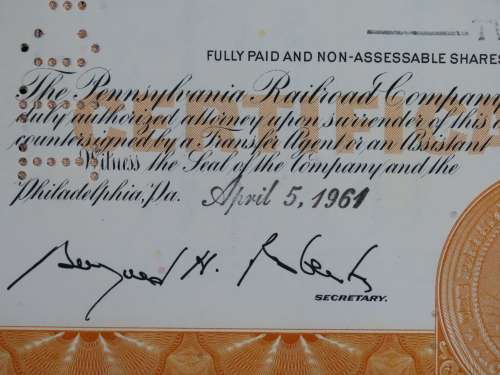 FULLY PAID AND NON-ASSESSABLE SHARES
The Pennsylvania Railroad Company
duly authorized attorney upon surrender of this
countersigned by a Transfer Agent or an Assistant
Witness the Seal of the Company and the
Philadelphia, Pa. April 5, 1961
SECRETARY.